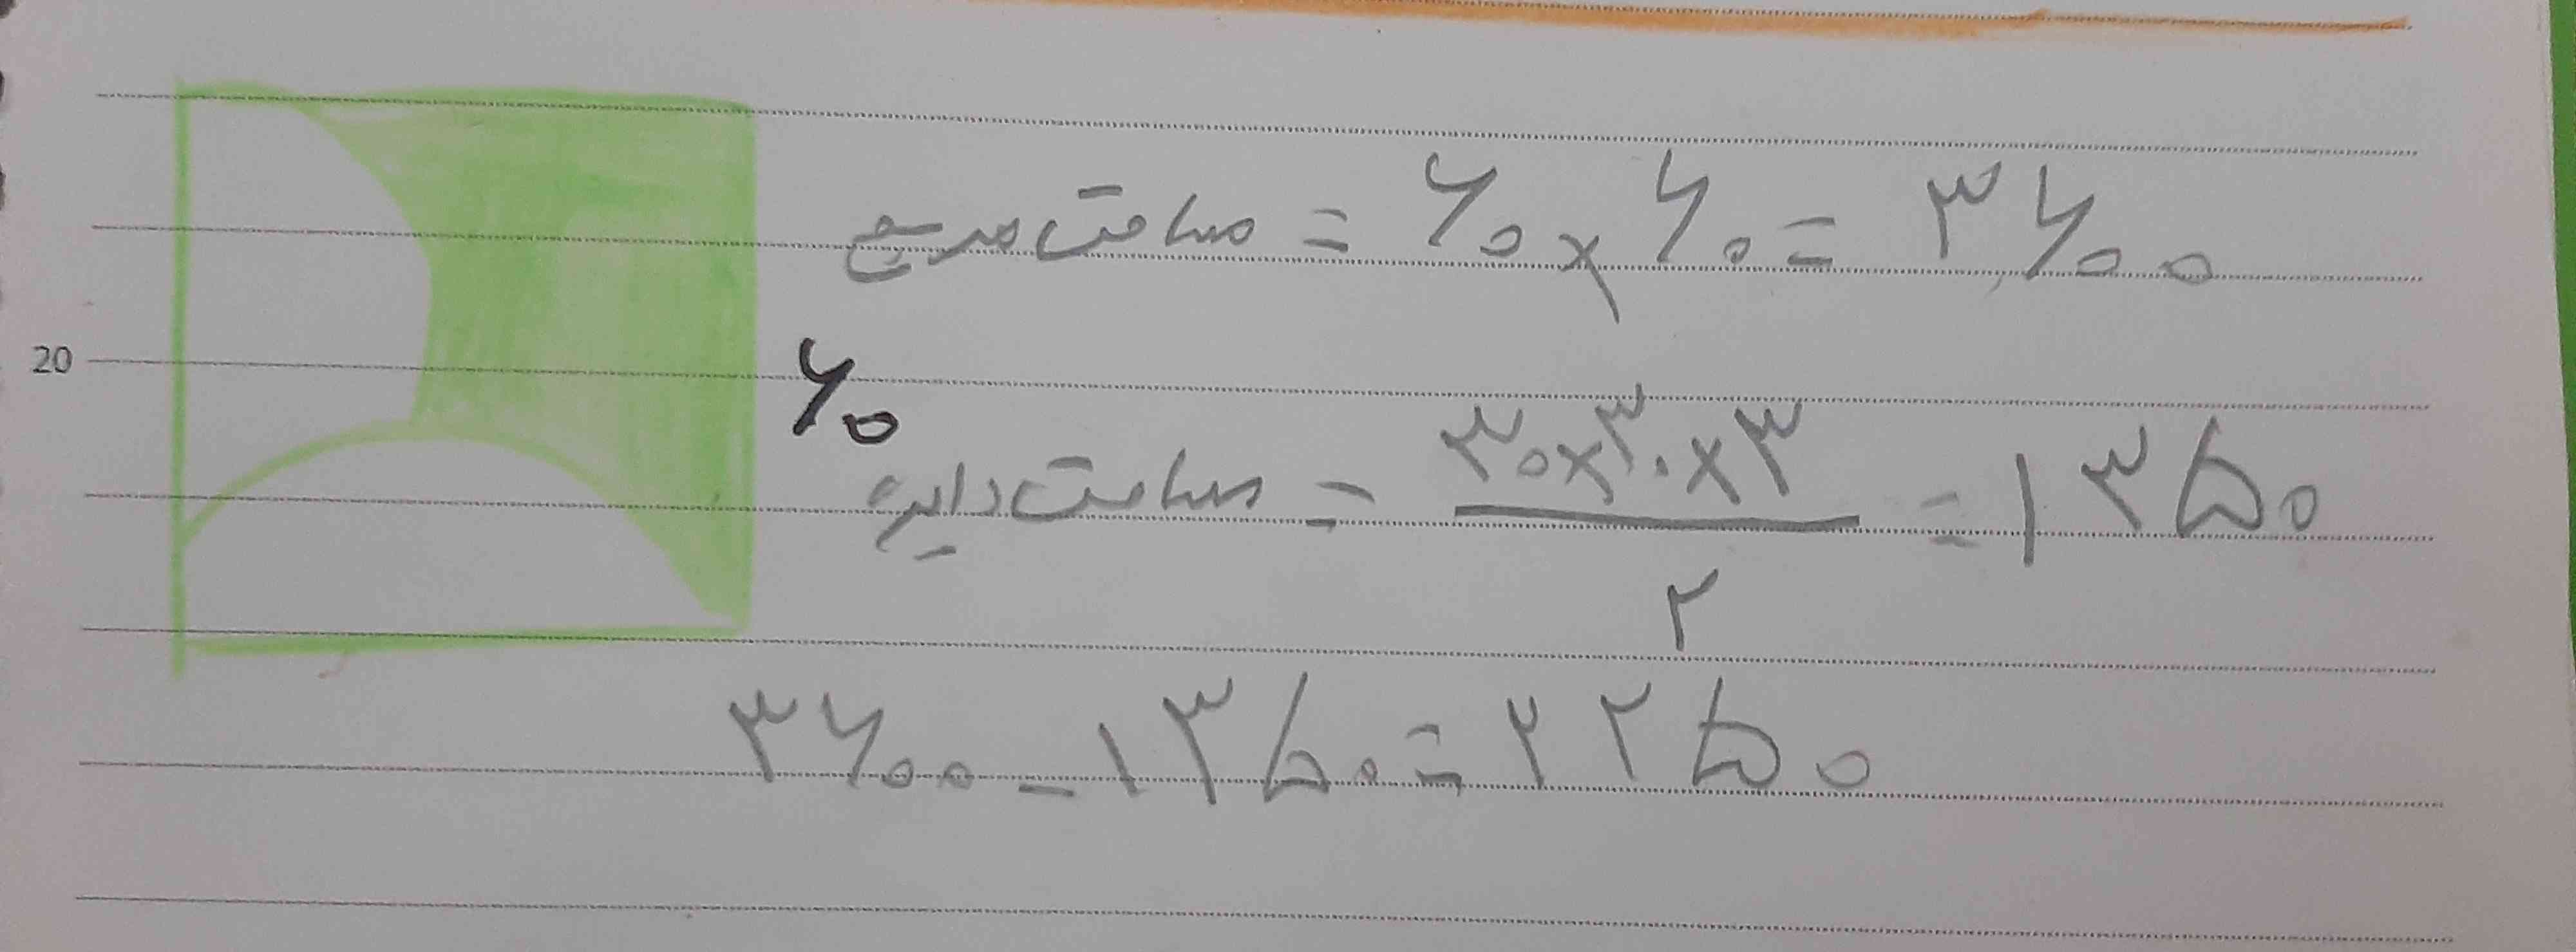 مساحت مربع = ۶۰ × ۶۰ = ۳۶۰۰
20
۶۰
مساحت دایره = ۳۰×۳۰×۳ / ۲ = ۱۳۵۰
۳۶۰۰ - ۱۳۵۰ = ۲۲۵۰